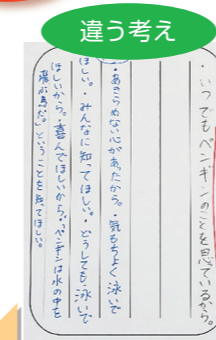 違う考え
・いつでもペンギンのことを思ているから。
・あきらめない心があったから。・気もちよく泳いで
ほしい。・みんなに知ってほしい。・どうしても泳いで
ほしいから。喜んでほしいから。・ペンギンは水の中を
飛ぶ鳥だ。ということを知てほしい。